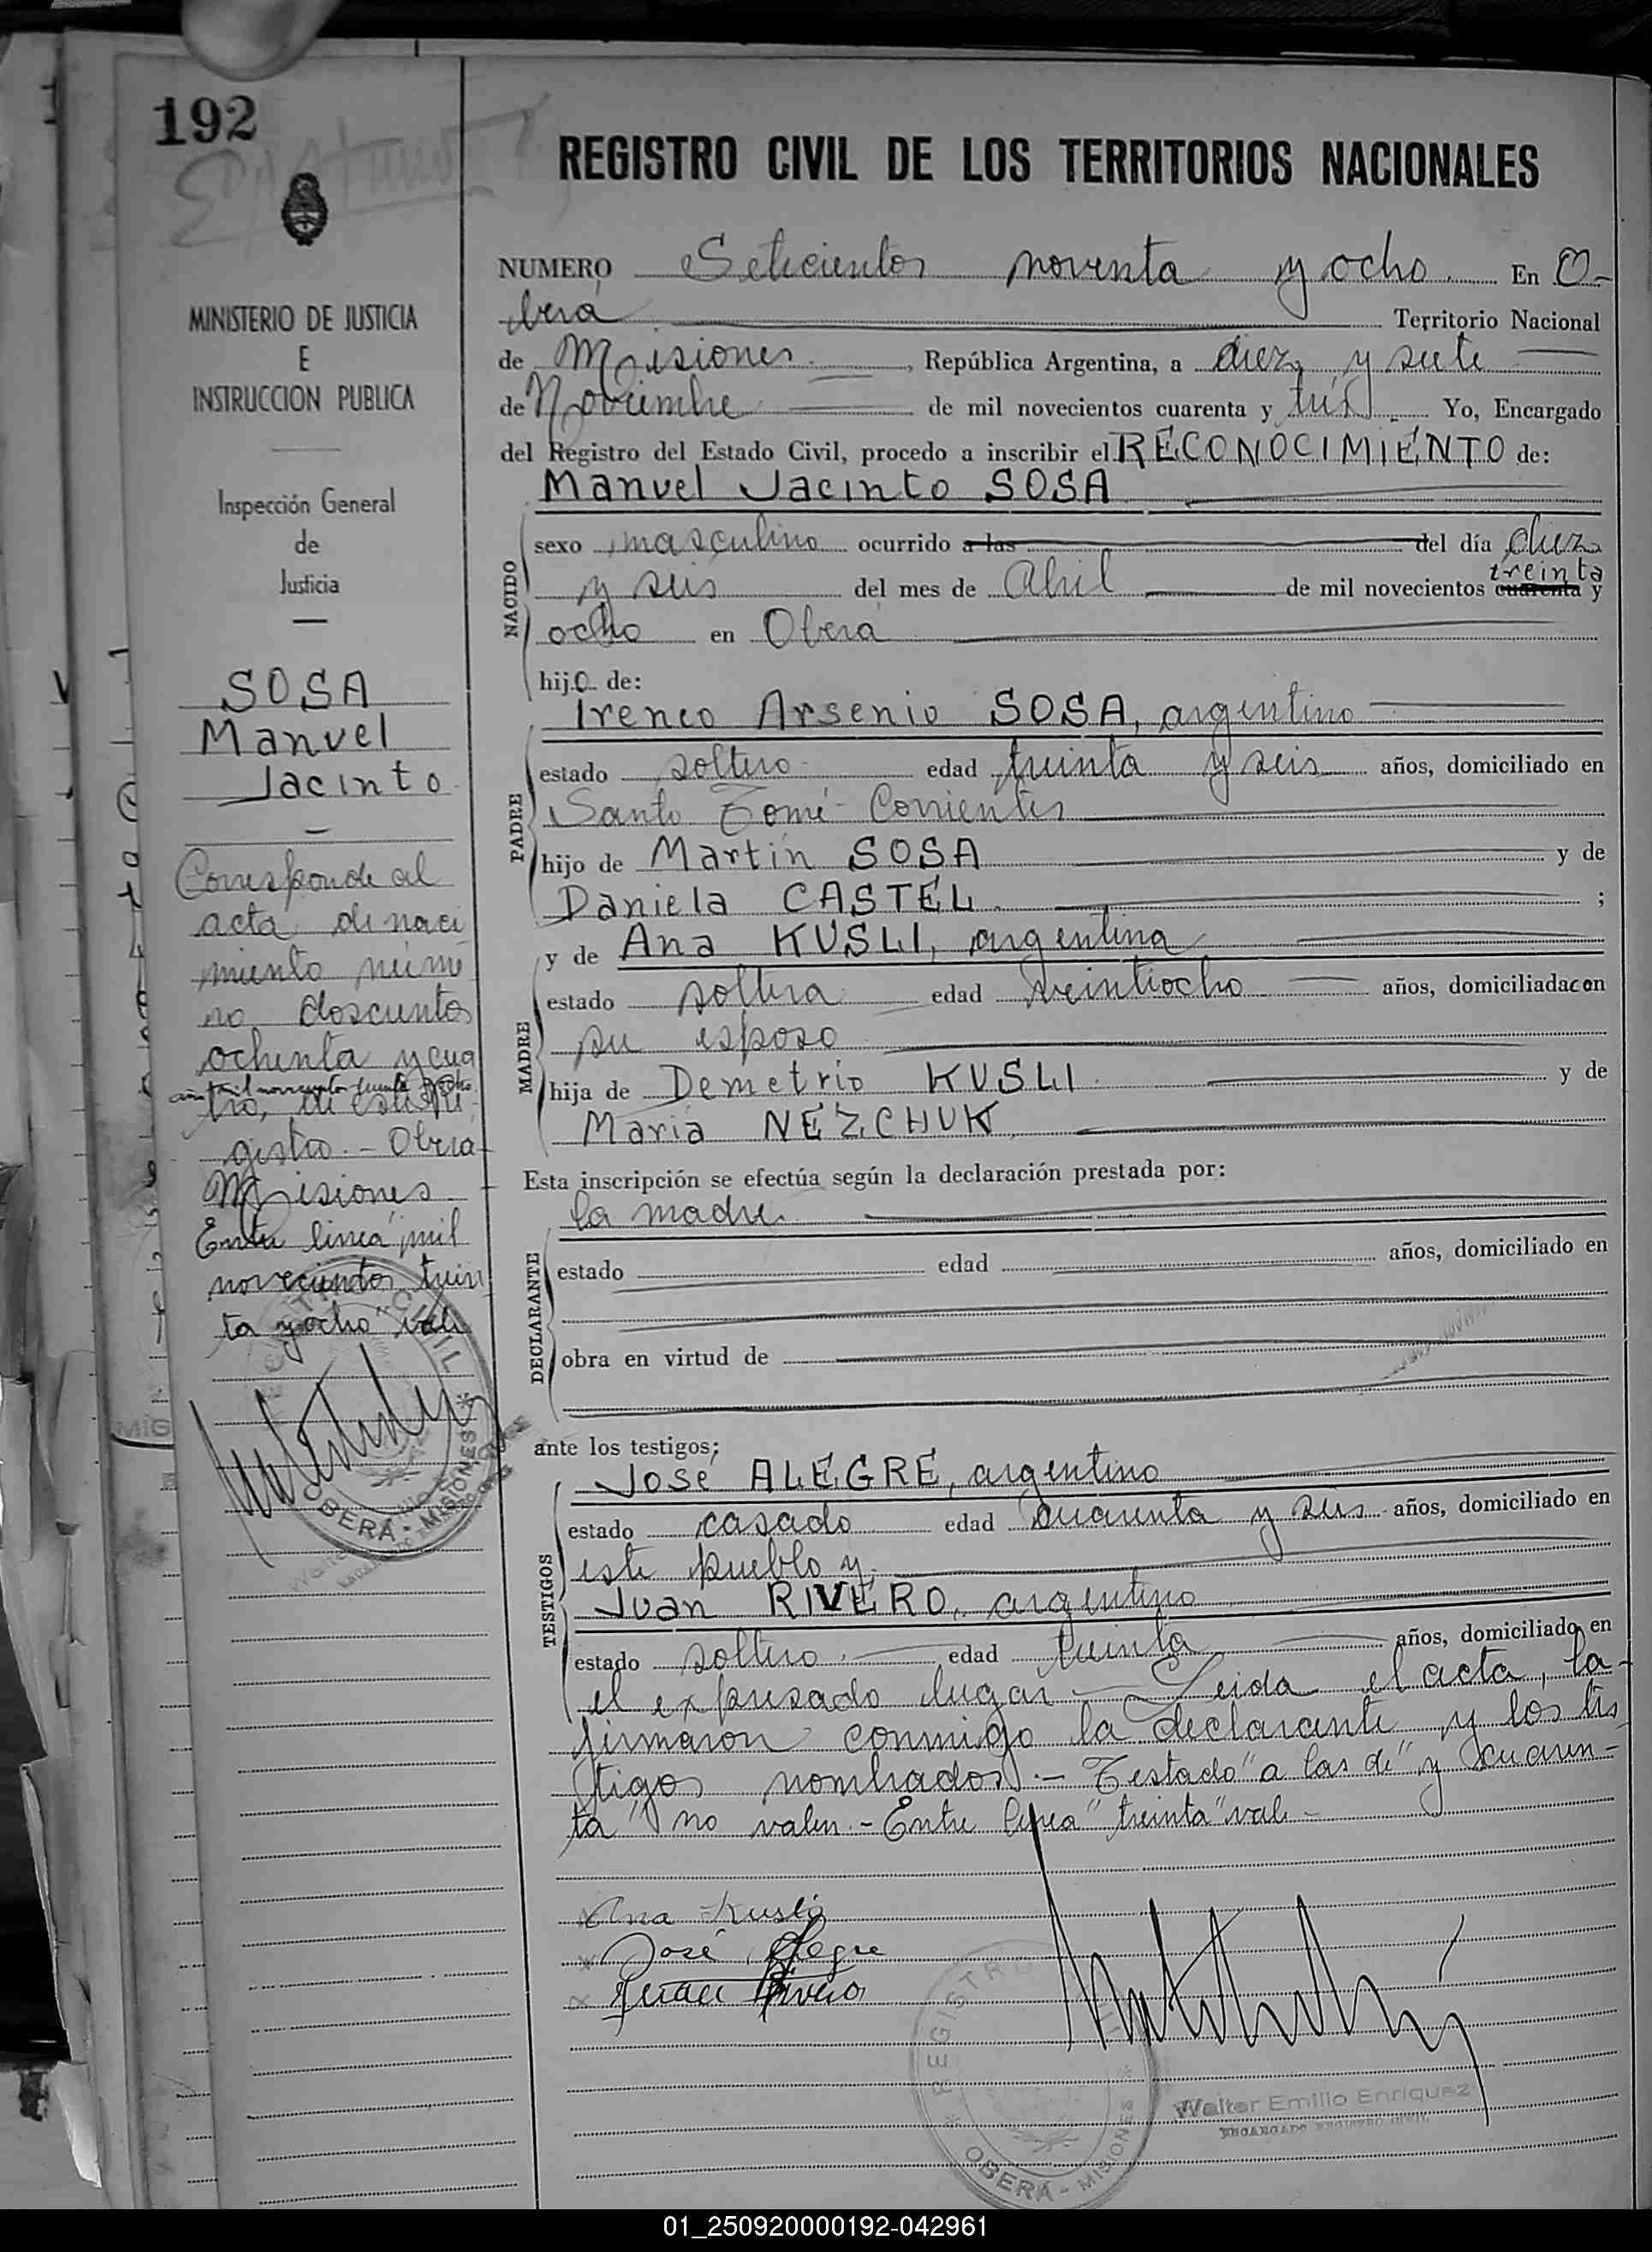 192
MINISTERIO DE JUSTICIA
E
INSTRUCCION PUBLICA
Inspección General
de
Justicia
SOSA
Manuel
Jacinto
Corresponde al
acta de naci
miento núme
ro doscientos
ochenta y cua
año mil novecientos treinta y ocho
tro, de este Re
gistro.- Oberá
Misiones
Entre linea "mil
novecientos trein
ta y ocho" vale
REGISTRO CIVIL DE LOS TERRITORIOS NACIONALES
NUMERO Setecientos noventa y ocho. En O-
berá Territorio Nacional
de Misiones, República Argentina, a diez y siete
de Noviembre de mil novecientos cuarenta y tres. Yo, Encargado
del Registro del Estado Civil, procedo a inscribir el RECONOCIMIENTO de:
Manuel Jacinto SOSA
NACIDO
sexo masculino ocurrido a las del día diez
treinta
y seis del mes de Abril de mil novecientos cuarenta y
ocho en Oberá
hijo de:
PADRE
Ireneo Arsenio SOSA, argentino
estado soltero edad treinta y seis años, domiciliado en
Santo Tomé - Corrientes
hijo de Martín SOSA y de
Daniela CASTEL ;
MADRE
y de Ana KUSLI, argentina
estado soltera edad veintiocho años, domiciliada con
su esposo
hija de Demetrio KUSLI y de
María NEZCHUK
Esta inscripción se efectúa según la declaración prestada por:
la madre
DECLARANTE
estado edad años, domiciliado en
obra en virtud de
ante los testigos;
TESTIGOS
José ALEGRE, argentino
estado casado edad cuarenta y seis años, domiciliado en
este pueblo y
Juan RIVERO, argentino
estado soltero edad treinta años, domiciliado en
el expresado lugar - Leida el acta, la
firmaron conmigo la declarante y los tes
tigos nombrados.- Testado "a las de" y "cuaren-
ta" no valen.- Entre linea "treinta" vale-
Ana Kusli
José Alegre
Juan Rivero
REGISTRO CIVIL
OBERÁ - MISIONES
Walter Emilio Enriquez
ENCARGADO REGISTRO CIVIL
01_250920000192-042961